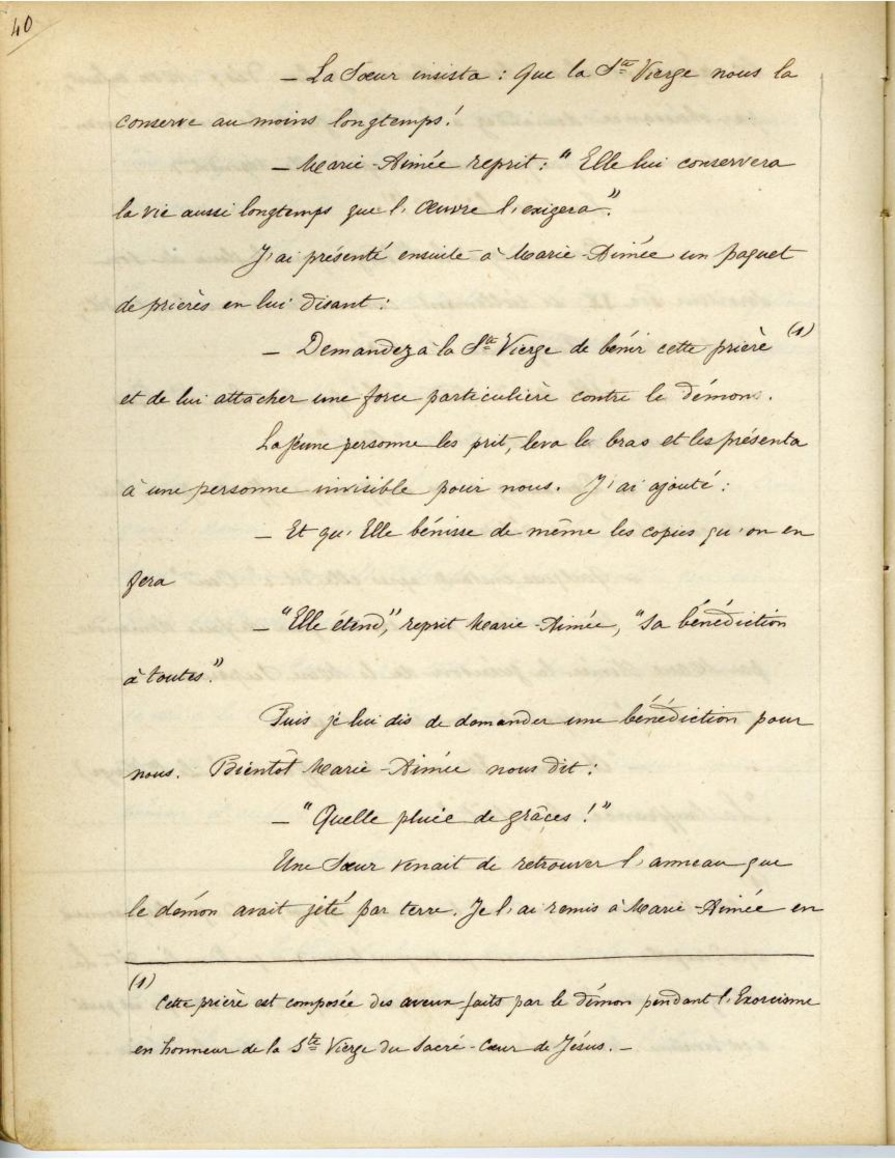 40
— La Sœur insista : Que la Ste Vierge nous la
conserve au moins longtemps !
— Marie-Aimée reprit : " Elle lui conservera
la vie aussi longtemps que l'Œuvre l'exigera ".
J'ai présenté ensuite à Marie-Aimée un paquet
de prières en lui disant :
— Demandez à la Ste Vierge de bénir cette prière (1)
et de lui attacher une force particulière contre le démons.
La jeune personne les prit, leva le bras et les présenta
à une personne invisible pour nous. J'ai ajouté :
— Et qu'Elle bénisse de même les copies qu'on en
fera
— "Elle étend", reprit Marie-Aimée, "sa bénédiction
à toutes".
Puis je lui dis de demander une bénédiction pour
nous. Bientôt Marie-Aimée nous dit :
— "Quelle pluie de grâces !"
Une Sœur venait de retrouver l'anneau que
le démon avait jeté par terre. Je l'ai remis à Marie-Aimée en
(1) Cette prière est composée des aveux faits par le démon pendant l'Exorcisme
en honneur de la Ste Vierge du Sacré-Cœur de Jésus. —